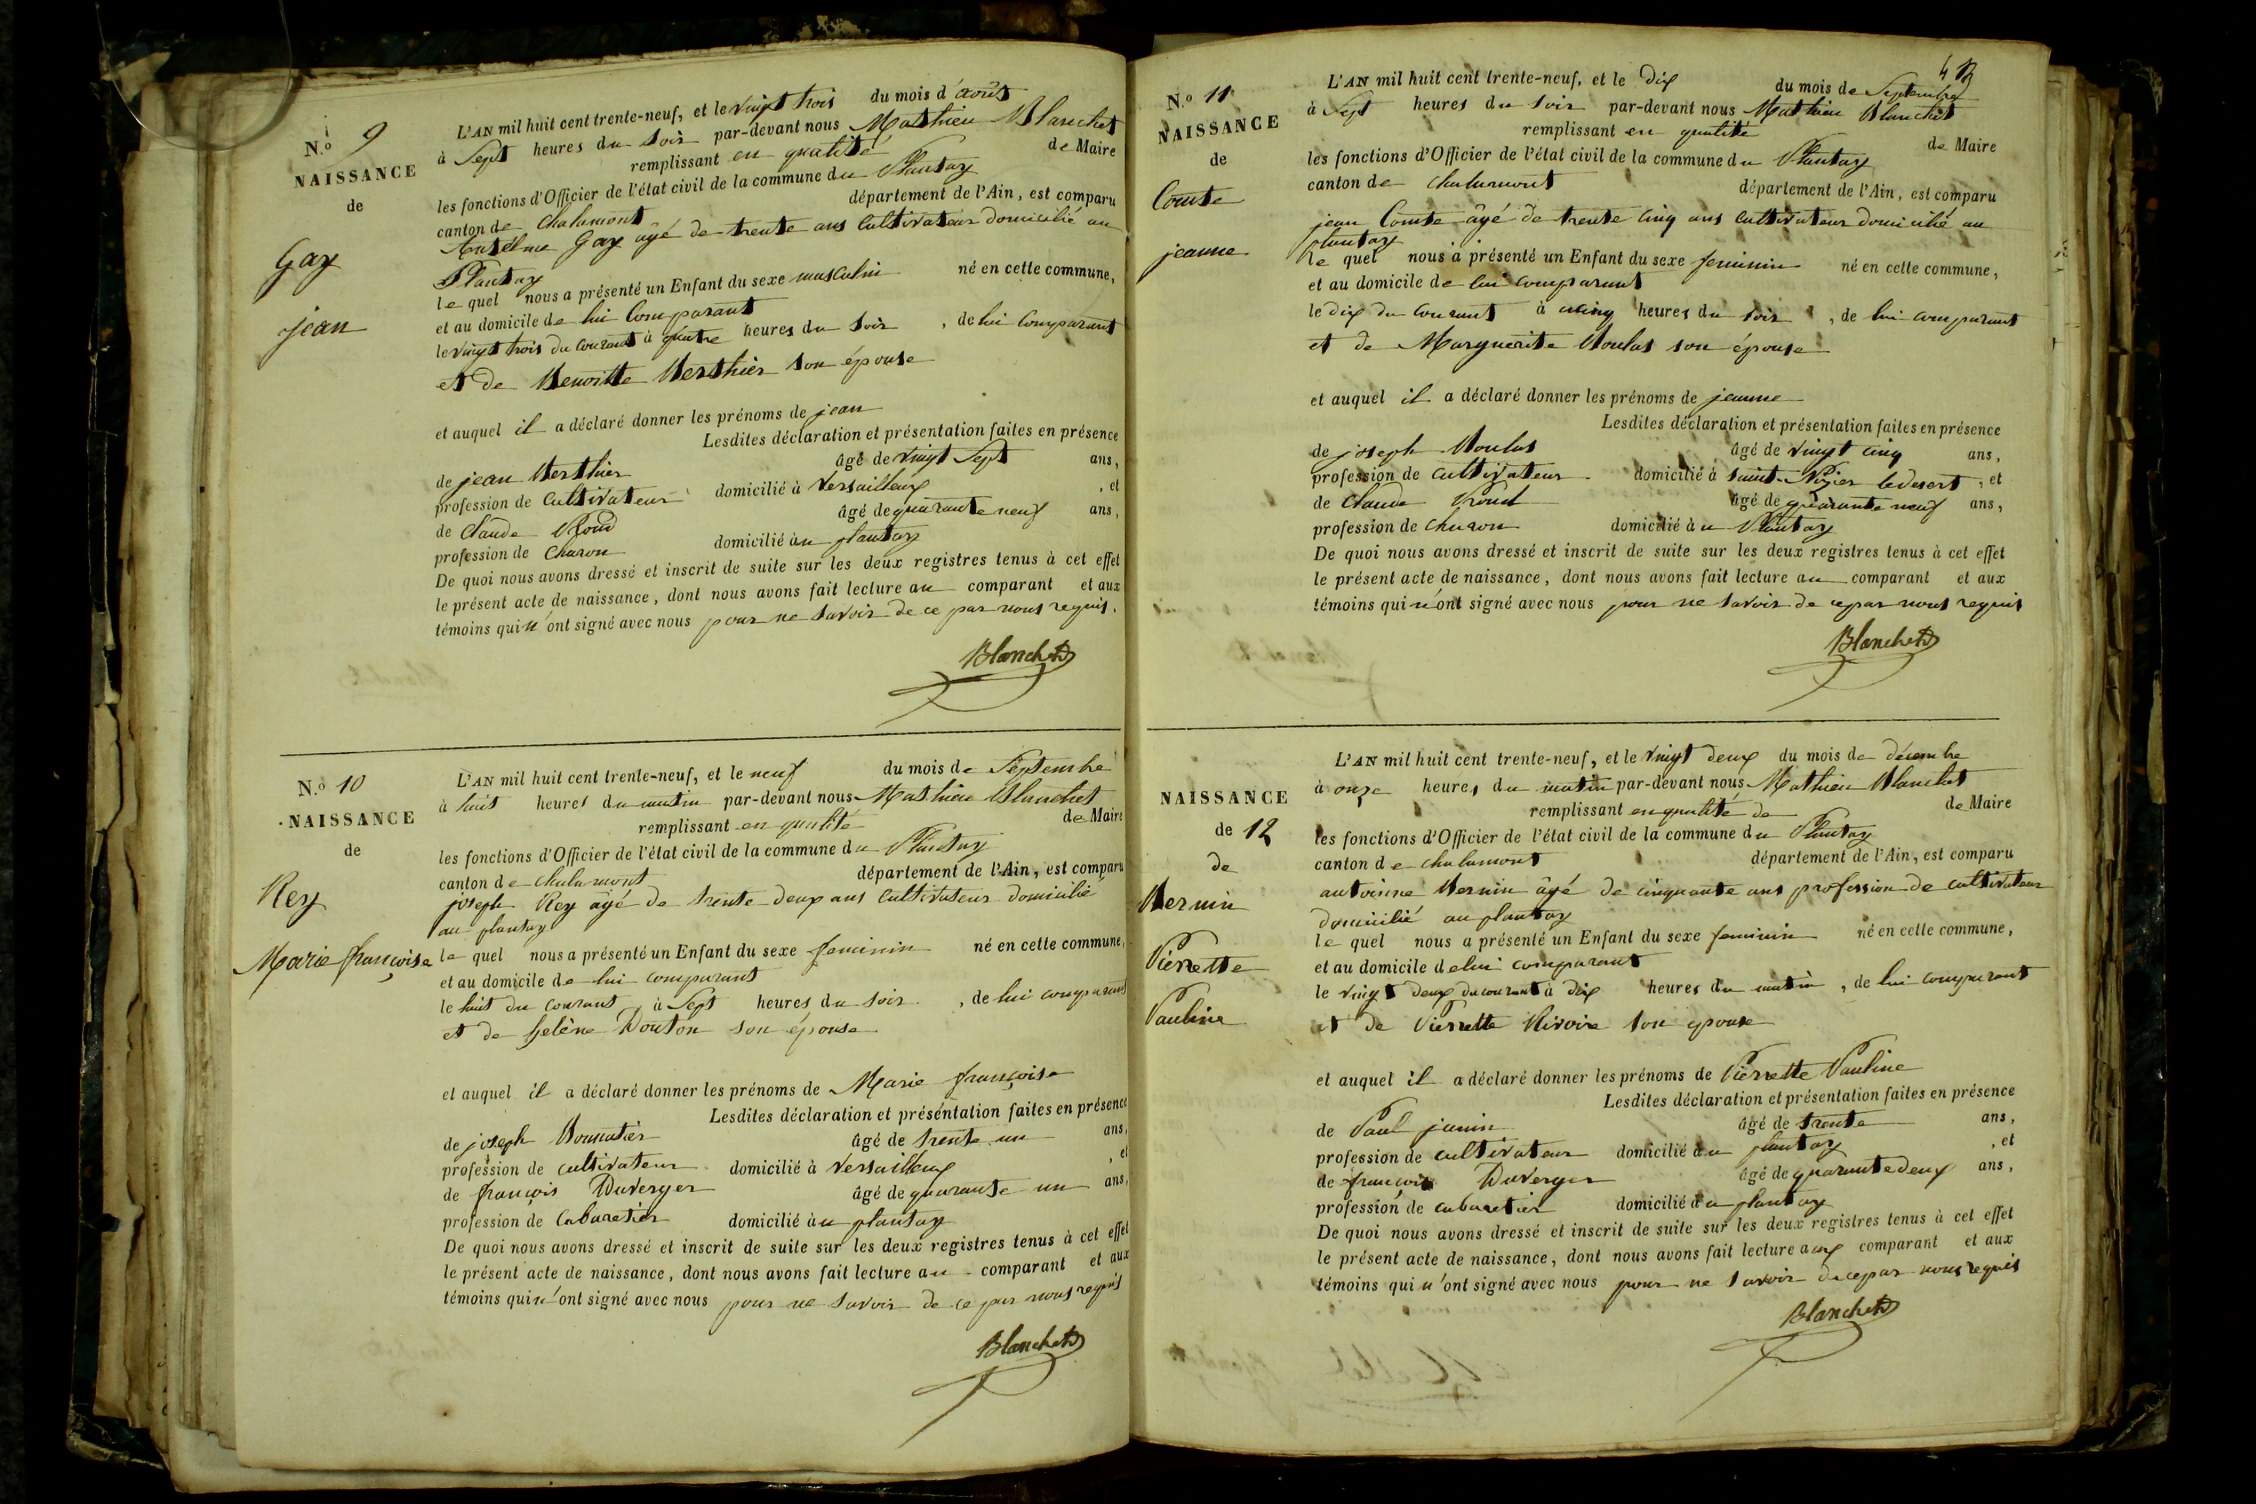 N.o 9
NAISSANCE
de
Gay
jean
L'AN mil huit cent trente-neuf, et le vingt trois du mois d'août
à Sept heures du soir par-devant nous Matthieu Blanchet
remplissant en qualité de Maire
les fonctions d'Officier de l'état civil de la commune du Plantay
canton de Chalamont département de l'Ain, est comparu
Antélme Gay âgé de trente ans Cultivateur domicilié au
Plantay
le quel nous a présenté un Enfant du sexe masculin né en cette commune,
et au domicile de lui Comparant
le vingt trois du courant à quatre heures du soir, de lui Comparant
et de Benoitte Berthier son épouse
et auquel il a déclaré donner les prénoms de jean
Lesdites déclaration et présentation faites en présence
de jean Berthier âgé de vingt Sept ans,
profession de Cultivateur domicilié à Versailleux, et
de Claude Proud âgé de quarante neuf ans,
profession de Charon domicilié au plantay
De quoi nous avons dressé et inscrit de suite sur les deux registres tenus à cet effet
le présent acte de naissance, dont nous avons fait lecture au comparant et aux
témoins qui n'ont signé avec nous pour ne savoir de ce par nous requis.
Blanchet
N.o 10
NAISSANCE
de
Rey
Marie françoise
L'AN mil huit cent trente-neuf, et le neuf du mois de Septembre
à huit heures du matin par-devant nous Mathieu Blanchet
remplissant en qualité de Maire
les fonctions d'Officier de l'état civil de la commune du Plantay
canton de Chalamont département de l'Ain, est comparu
joseph Rey âgé de trente deux ans Cultivateur domicilié
au plantay
le quel nous a présenté un Enfant du sexe feminin né en cette commune,
et au domicile de lui comparant
le huit du courant à Sept heures du soir, de lui comparant
et de helène Douton son épouse
et auquel il a déclaré donner les prénoms de Marie françoise
Lesdites déclaration et présentation faites en présence
de joseph Bonnatier âgé de trente un ans,
profession de cultivateur domicilié à Versailleux, et
de françois Duverger âgé de quarante un ans,
profession de Cabaretier domicilié au plantay
De quoi nous avons dressé et inscrit de suite sur les deux registres tenus à cet effet
le présent acte de naissance, dont nous avons fait lecture au comparant et aux
témoins qui n'ont signé avec nous pour ne savoir de ce par nous requis
Blanchet
N.o 11
NAISSANCE
de
Comte
jeanne
L'AN mil huit cent trente-neuf, et le dix du mois de Septembre
à Sept heures du soir par-devant nous Mathieu Blanchet
remplissant en qualité de Maire
les fonctions d'Officier de l'état civil de la commune du Plantay
canton de Chalamont département de l'Ain, est comparu
jean Comte âgé de trente cinq ans Cultivateur domicilié au
plantay
le quel nous a présenté un Enfant du sexe feminin né en cette commune,
et au domicile de lui comparant
le dix du courant à cinq heures du soir, de lui comparant
et de Marguerite Boulas son épouse
et auquel il a déclaré donner les prénoms de jeanne
Lesdites déclaration et présentation faites en présence
de joseph Boulas âgé de vingt cinq ans,
profession de cultivateur domicilié à saint Nizier le desert, et
de Claude Proud âgé de quarante neuf ans,
profession de charon domicilié au Plantay
De quoi nous avons dressé et inscrit de suite sur les deux registres tenus à cet effet
le présent acte de naissance, dont nous avons fait lecture au comparant et aux
témoins qui n'ont signé avec nous pour ne savoir de ce par nous requis
Blanchet
NAISSANCE
de 12
de
Bernin
Pierrette
Pauline
L'AN mil huit cent trente-neuf, et le vingt deux du mois de décembre
à onze heures du matin par-devant nous Mathieu Blanchet
remplissant en qualité de de Maire
les fonctions d'Officier de l'état civil de la commune du Plantay
canton de chalamont département de l'Ain, est comparu
antoinne Bernin âgé de cinquante ans profession de cultivateur
domicilié au plantay
le quel nous a présenté un Enfant du sexe feminin né en cette commune,
et au domicile de lui comparant
le vingt deux du courant à dix heures du matin, de lui comparant
et de Pierrette Rivoire son epouse
et auquel il a déclaré donner les prénoms de Pierrette Pauline
Lesdites déclaration et présentation faites en présence
de Paul janin âgé de trente ans,
profession de cultivateur domicilié au plantay, et
de françois Duverger âgé de quarante deux ans,
profession de cabaretier domicilié au plantay
De quoi nous avons dressé et inscrit de suite sur les deux registres tenus à cet effet
le présent acte de naissance, dont nous avons fait lecture aux comparant et aux
témoins qui n'ont signé avec nous pour ne savoir de ce par nous requis
Blanchet